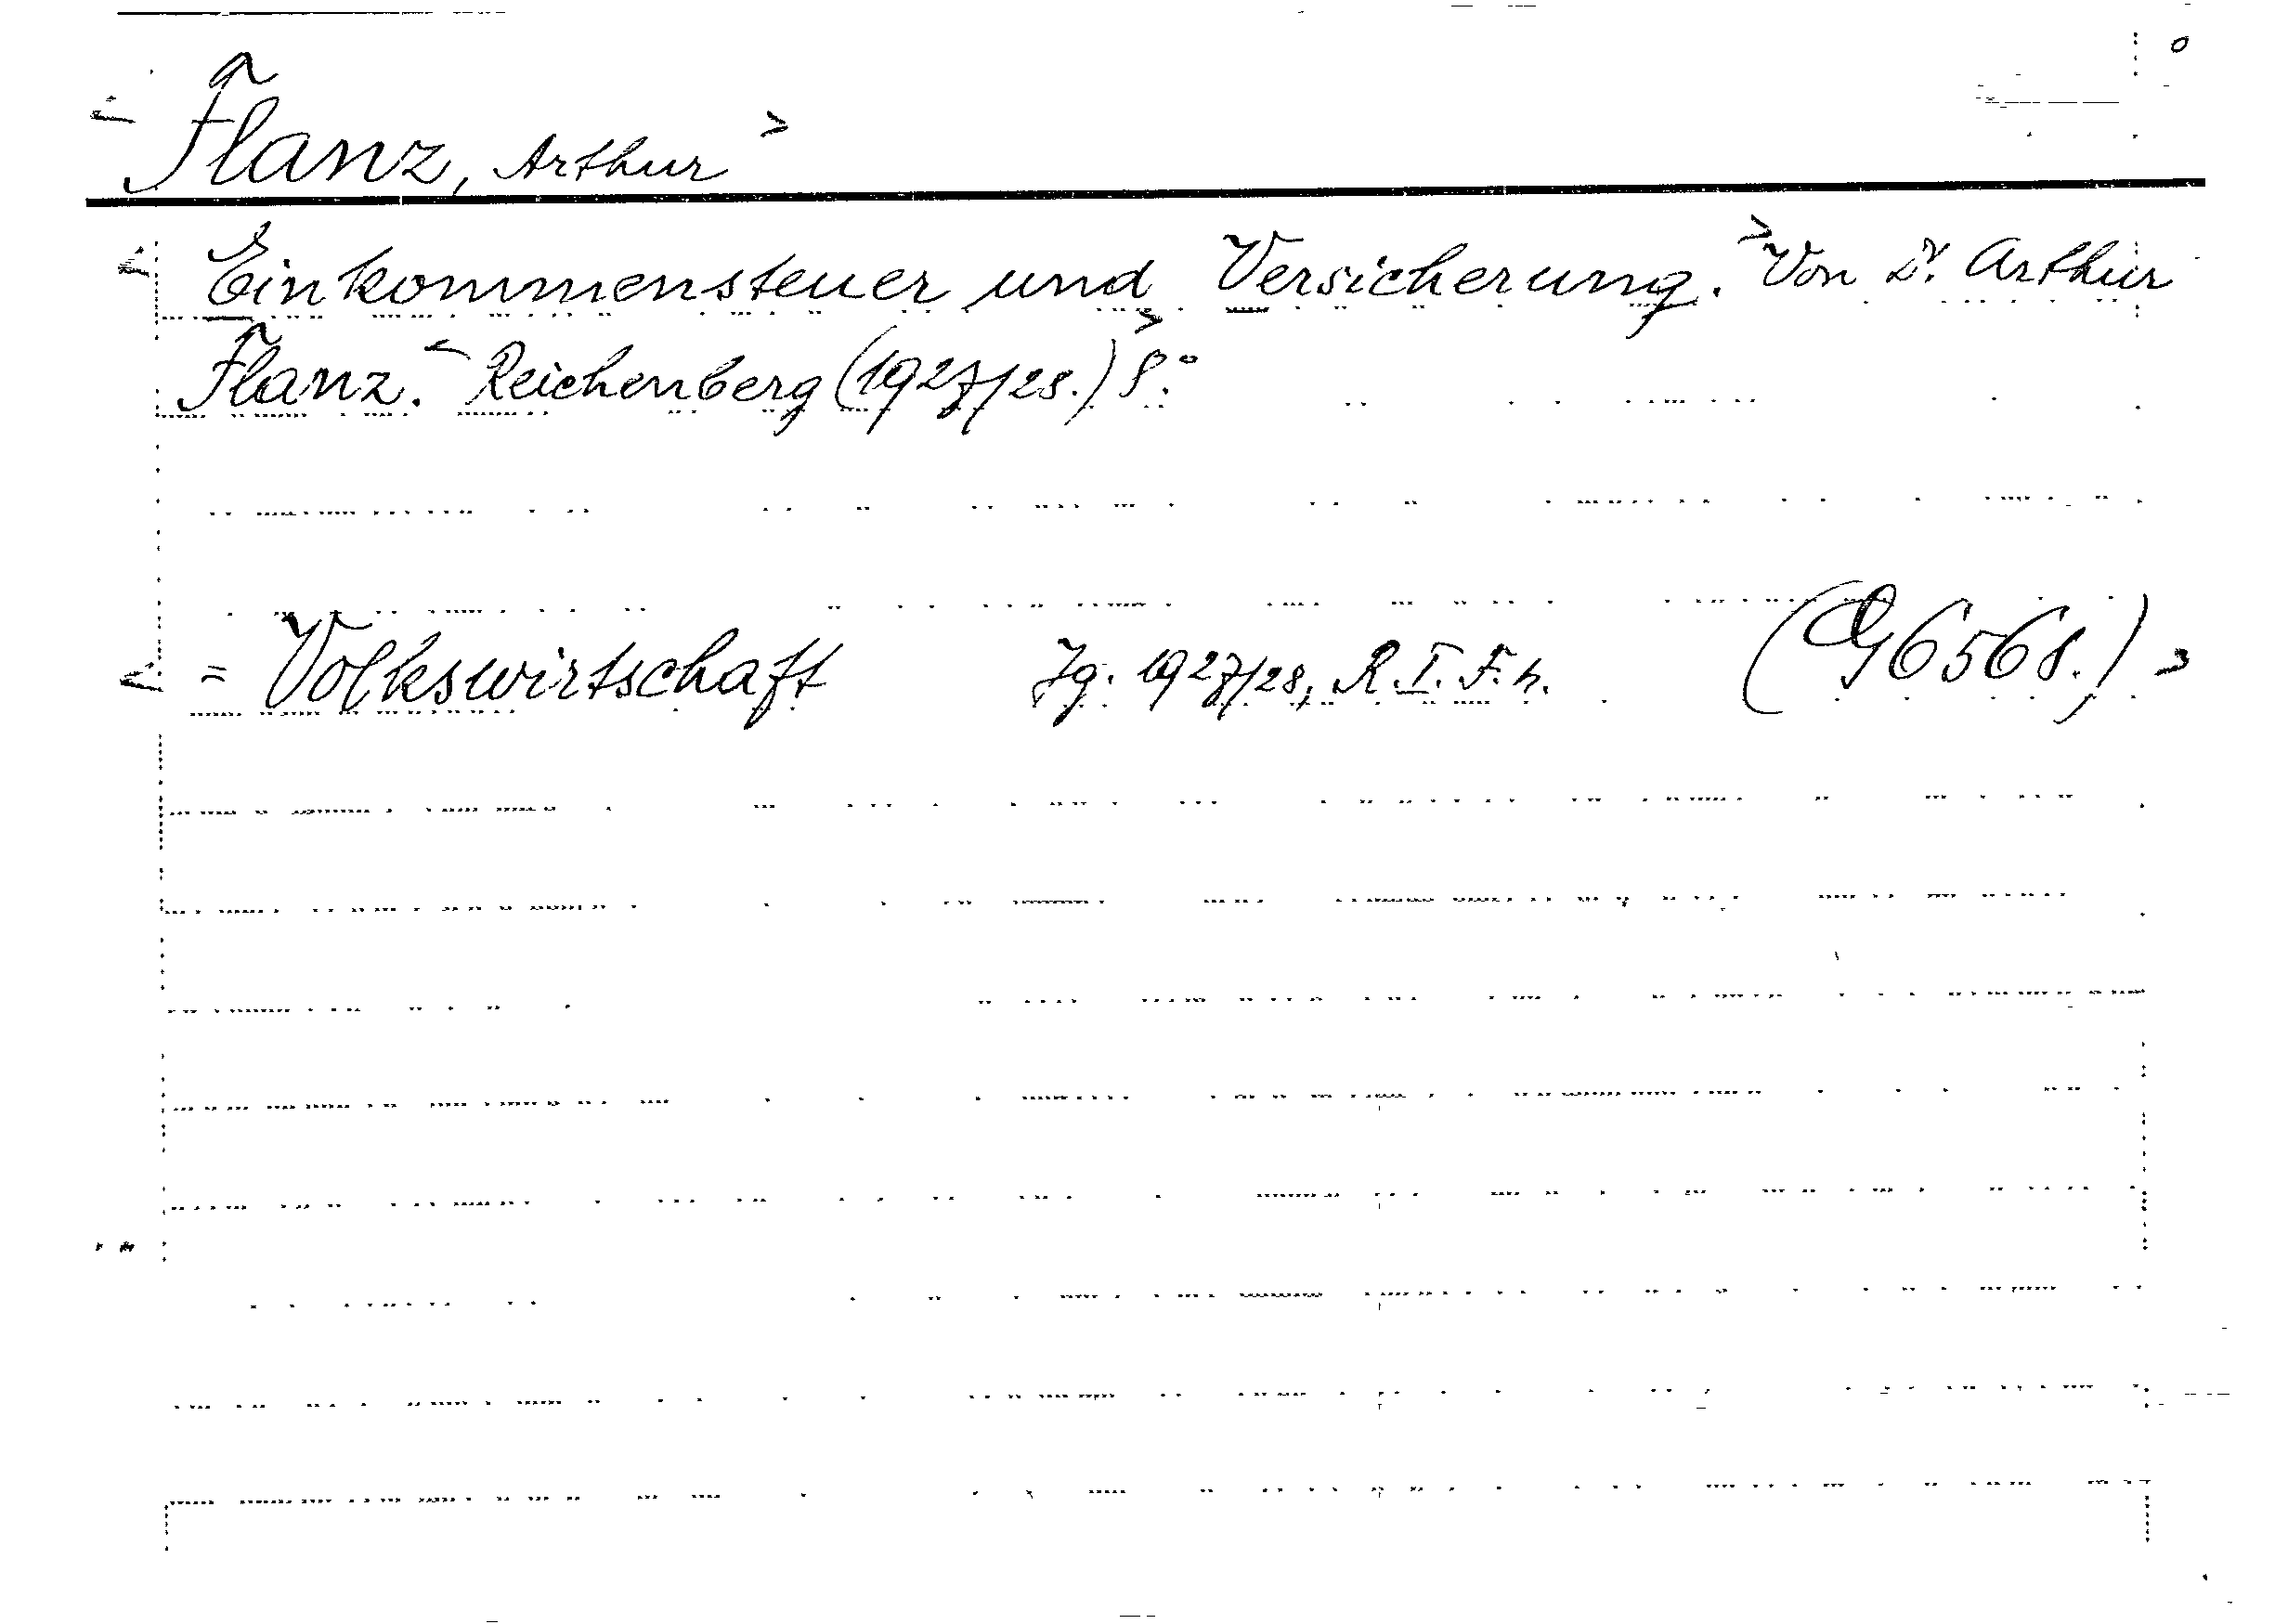 Flanz, Arthur
Einkommensteuer und Versicherung. Von Dr. Arthur
Flanz. Reichenberg (1927/28.) 8.°
= Volkswirtschaft Jg. 1927/28, R. I. F. h. (G6568.)